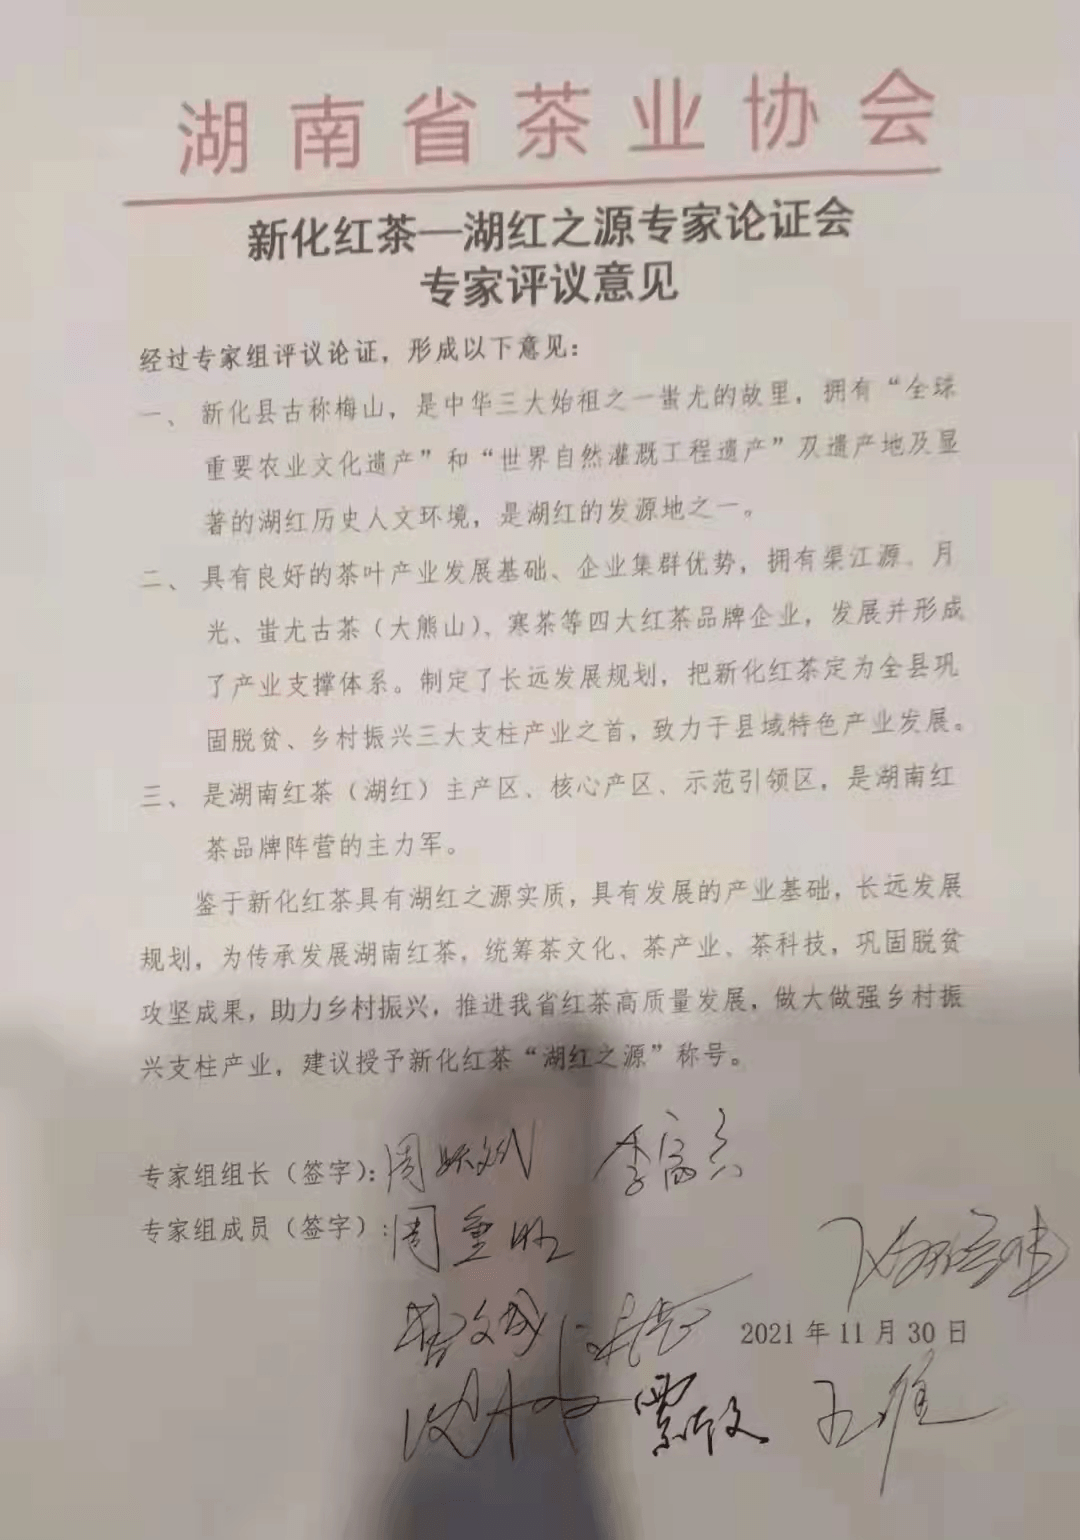 湖南省茶业协会
新化红茶—湖红之源专家论证会
专家评议意见
经过专家组评议论证，形成以下意见：
一、新化县古称梅山，是中华三大始祖之一蚩尤的故里，拥有“全球
重要农业文化遗产”和“世界自然灌溉工程遗产”双遗产地及显
著的湖红历史人文环境，是湖红的发源地之一。
二、具有良好的茶叶产业发展基础、企业集群优势，拥有渠江源、月
光、蚩尤古茶（大熊山）、寒茶等四大红茶品牌企业，发展并形成
了产业支撑体系。制定了长远发展规划，把新化红茶定为全县巩
固脱贫、乡村振兴三大支柱产业之首，致力于县域特色产业发展。
三、是湖南红茶（湖红）主产区、核心产区、示范引领区，是湖南红
茶品牌阵营的主力军。
鉴于新化红茶具有湖红之源实质，具有发展的产业基础，长远发展
规划，为传承发展湖南红茶，统筹茶文化、茶产业、茶科技，巩固脱贫
攻坚成果，助力乡村振兴，推进我省红茶高质量发展，做大做强乡村振
兴支柱产业，建议授予新化红茶“湖红之源”称号。
专家组组长（签字）：
专家组成员（签字）：周重旺
2021年11月30日